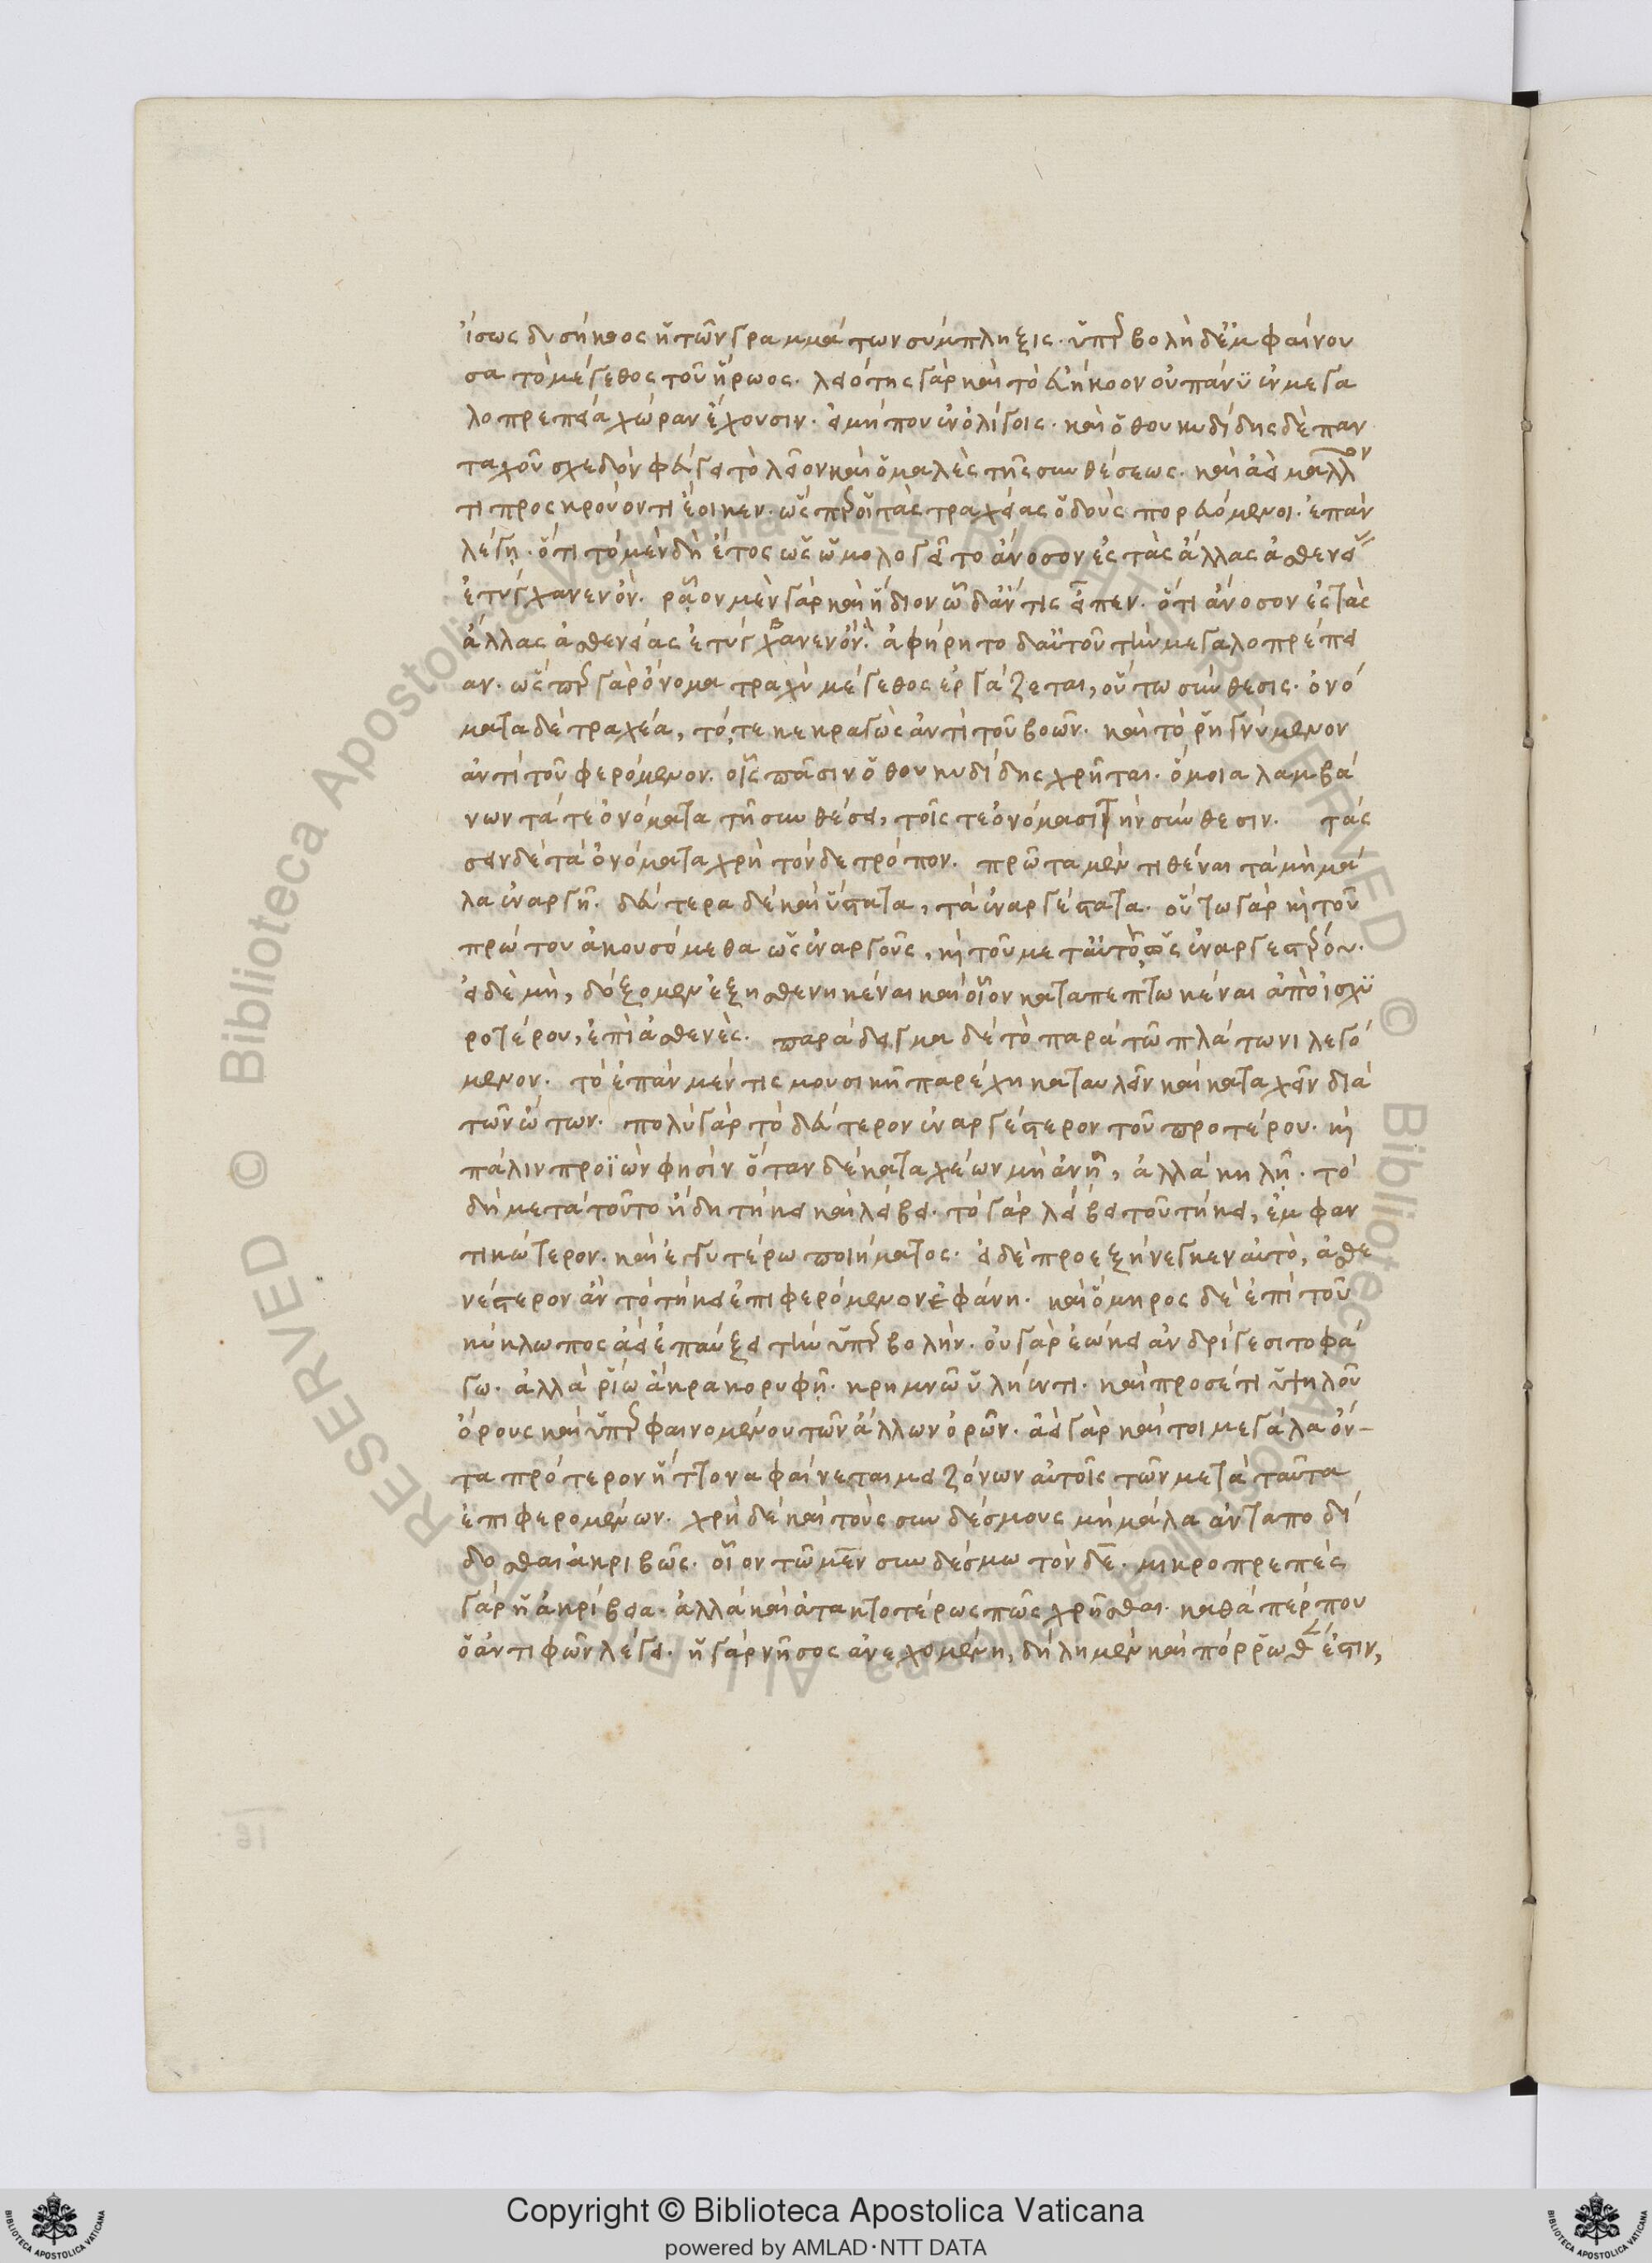 ἴσως δυσήκοος ἡ τῶν γραμμάτων σύμπληξις. ὑπερβολὴ δ' ἐμφαίνου
σα τὸ μέγεθος τοῦ ἥρωος. λειότης γὰρ καὶ τὸ εὐήκοον οὐ πάνυ ἐν μεγα
λοπρεπεία χώραν ἔχουσιν. εἰ μή που ἐν ὀλίγοις. καὶ ὁ θουκυδίδης δὲ παν
ταχοῦ σχεδὸν φεύγει τὸ λεῖον καὶ ὁμαλὲς τῆς συνθέσεως. καὶ ἀεὶ μᾶλλόν
τι προσκρούοντι ἔοικεν. ὥσπερ οἱ τὰς τραχείας ὁδοὺς πορευόμενοι. ἐπὰν
λέγῃ. ὅτι τὸ μὲν δὴ ἔτος ὡς ὡμολογεῖτο ἄνοσον ἐς τὰς ἄλλας ἀσθενείας
ἐτύγχανεν ὄν. ρᾷον μὲν γὰρ καὶ ἥδιον ὧδ' ἄν τις εἶπεν. ὅτι ἄνοσον ἐς τὰς
ἄλλας ἀσθενείας ἐτύγχανεν ὄν. ἀφήρητο δ' αὐτοῦ τὴν μεγαλοπρέπει
αν. ὥσπερ γὰρ ὄνομα τραχὺ μέγεθος ἐργάζεται, οὕτω σύνθεσις. ὀνό
ματα δὲ τραχέα, τό, τε κεκραγὼς ἀντὶ τοῦ βοῶν. καὶ τὸ ῥηγνύμενον
ἀντὶ τοῦ φερόμενον. οἷς πᾶσιν ὁ θουκυδίδης χρῆται. ὅμοια λαμβά
νων τά τε ὀνόματα τῆ συνθέσει, τοῖς τε ὀνόμασι τὴν σύνθεσιν. τάς
σειν δὲ τὰ ὀνόματα χρὴ τόνδε τρόπον. πρῶτα μὲν τιθέναι τὰ μὴ μά
λα ἐναργῆ. δεύτερα δὲ καὶ ὕστατα, τὰ ἐναργέστατα. οὕτω γὰρ καὶ τοῦ
πρώτου ἀκουσόμεθα ὡς ἐναργοῦς, καὶ τοῦ μετ' αὐτὸ ὡς ἐναργεστέρου.
εἰ δὲ μὴ, δόξομεν ἐξησθενηκέναι καὶ οἷον καταπεπτωκέναι ἀπὸ ἰσχυ
ροτέρου, ἐπὶ ἀσθενές. παράδειγμα δὲ τὸ παρὰ τῶ πλάτωνι λεγό
μενον. τὸ ἐπὰν μέν τις μουσικῆ παρέχη καταυλεῖν καὶ καταχεῖν διὰ
τῶν ὤτων. πολὺ γὰρ τὸ δεύτερον ἐναργέστερον τοῦ προτέρου. καὶ
πάλιν προϊὼν φησὶν ὅταν δὲ καταχέων μὴ ἀνῆ, ἀλλὰ κηλῆ. τὸ
δὴ μετὰ τοῦτο ἤδη τήκει καὶ λείβει. τὸ γὰρ λείβει τοῦ τήκει, ἐμφαν
τικώτερον. καὶ ἐγγυτέρω ποιήματος. εἰ δὲ προεξήνεγκεν αὐτό, ἀσθε
νέστερον ἂν τὸ τήκει ἐπιφερόμενον ἐφάνη. καὶ ὅμηρος δὲ ἐπὶ τοῦ
κύκλωπος ἀεὶ ἐπαύξει τὴν ὑπερβολήν. οὐ γὰρ ἐώκει ἀνδρί γε σιτοφά
γω. ἀλλὰ ῥίω ἄκρα κορυφῆ. κρημνῶ ὑλήεντι. καὶ προσέτι ὑψηλοῦ
ὄρους καὶ ὑπερφαινομένου τῶν ἄλλων ὀρῶν. ἀεὶ γὰρ καίτοι μεγάλα ὄν-
τα πρότερον ἥττονα φαίνεται μειζόνων αὐτοῖς τῶν μετὰ ταῦτα
ἐπιφερομένων. χρὴ δὲ καὶ τοὺς συνδέσμους μὴ μάλα ἀνταποδί
δοσθαι ἀκριβῶς. οἷον τῶ μὲν συνδέσμω τὸν δέ. μικροπρεπὲς
γὰρ ἡ ἀκρίβεια. ἀλλὰ καὶ ἀτακτοτέρως πῶς χρῆσθαι. καθάπέρ που
ὁ ἀντιφῶν λέγει. ἡ γὰρ νῆσος ἀνεχομένη, δήλη μὲν καὶ πόρρωθέν ἐστιν,